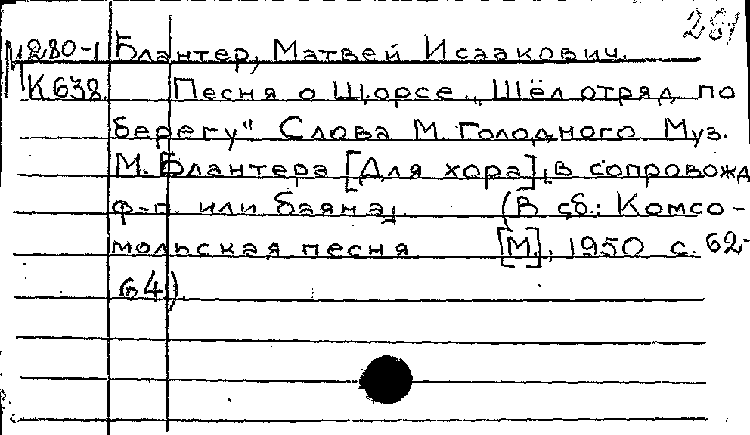 261
М280-1 Блантер, Матвей Исаакович.
К638 Песня о Щорсе „Шёл отряд по
берегу" Слова М. Голодного Муз.
М. Блантера [Для хора], в сопровожд
ф-п. или баяна, (В сб.: Комсо-
мольская песня [М], 1950 с. 62-
64)